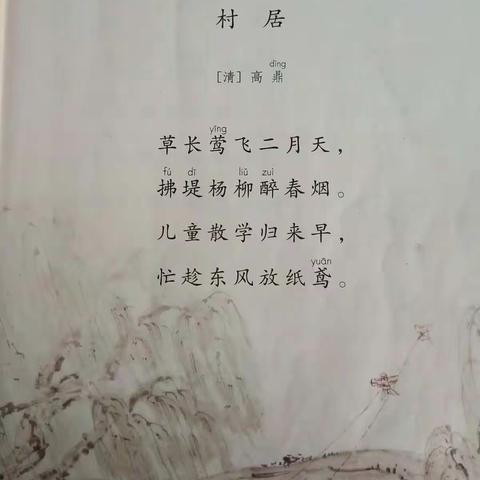 村居
dǐng
[清] 高鼎
yīng
草长莺飞二月天，
fú dī liǔ zuì
拂堤杨柳醉春烟。
儿童散学归来早，
yuān
忙趁东风放纸鸢。